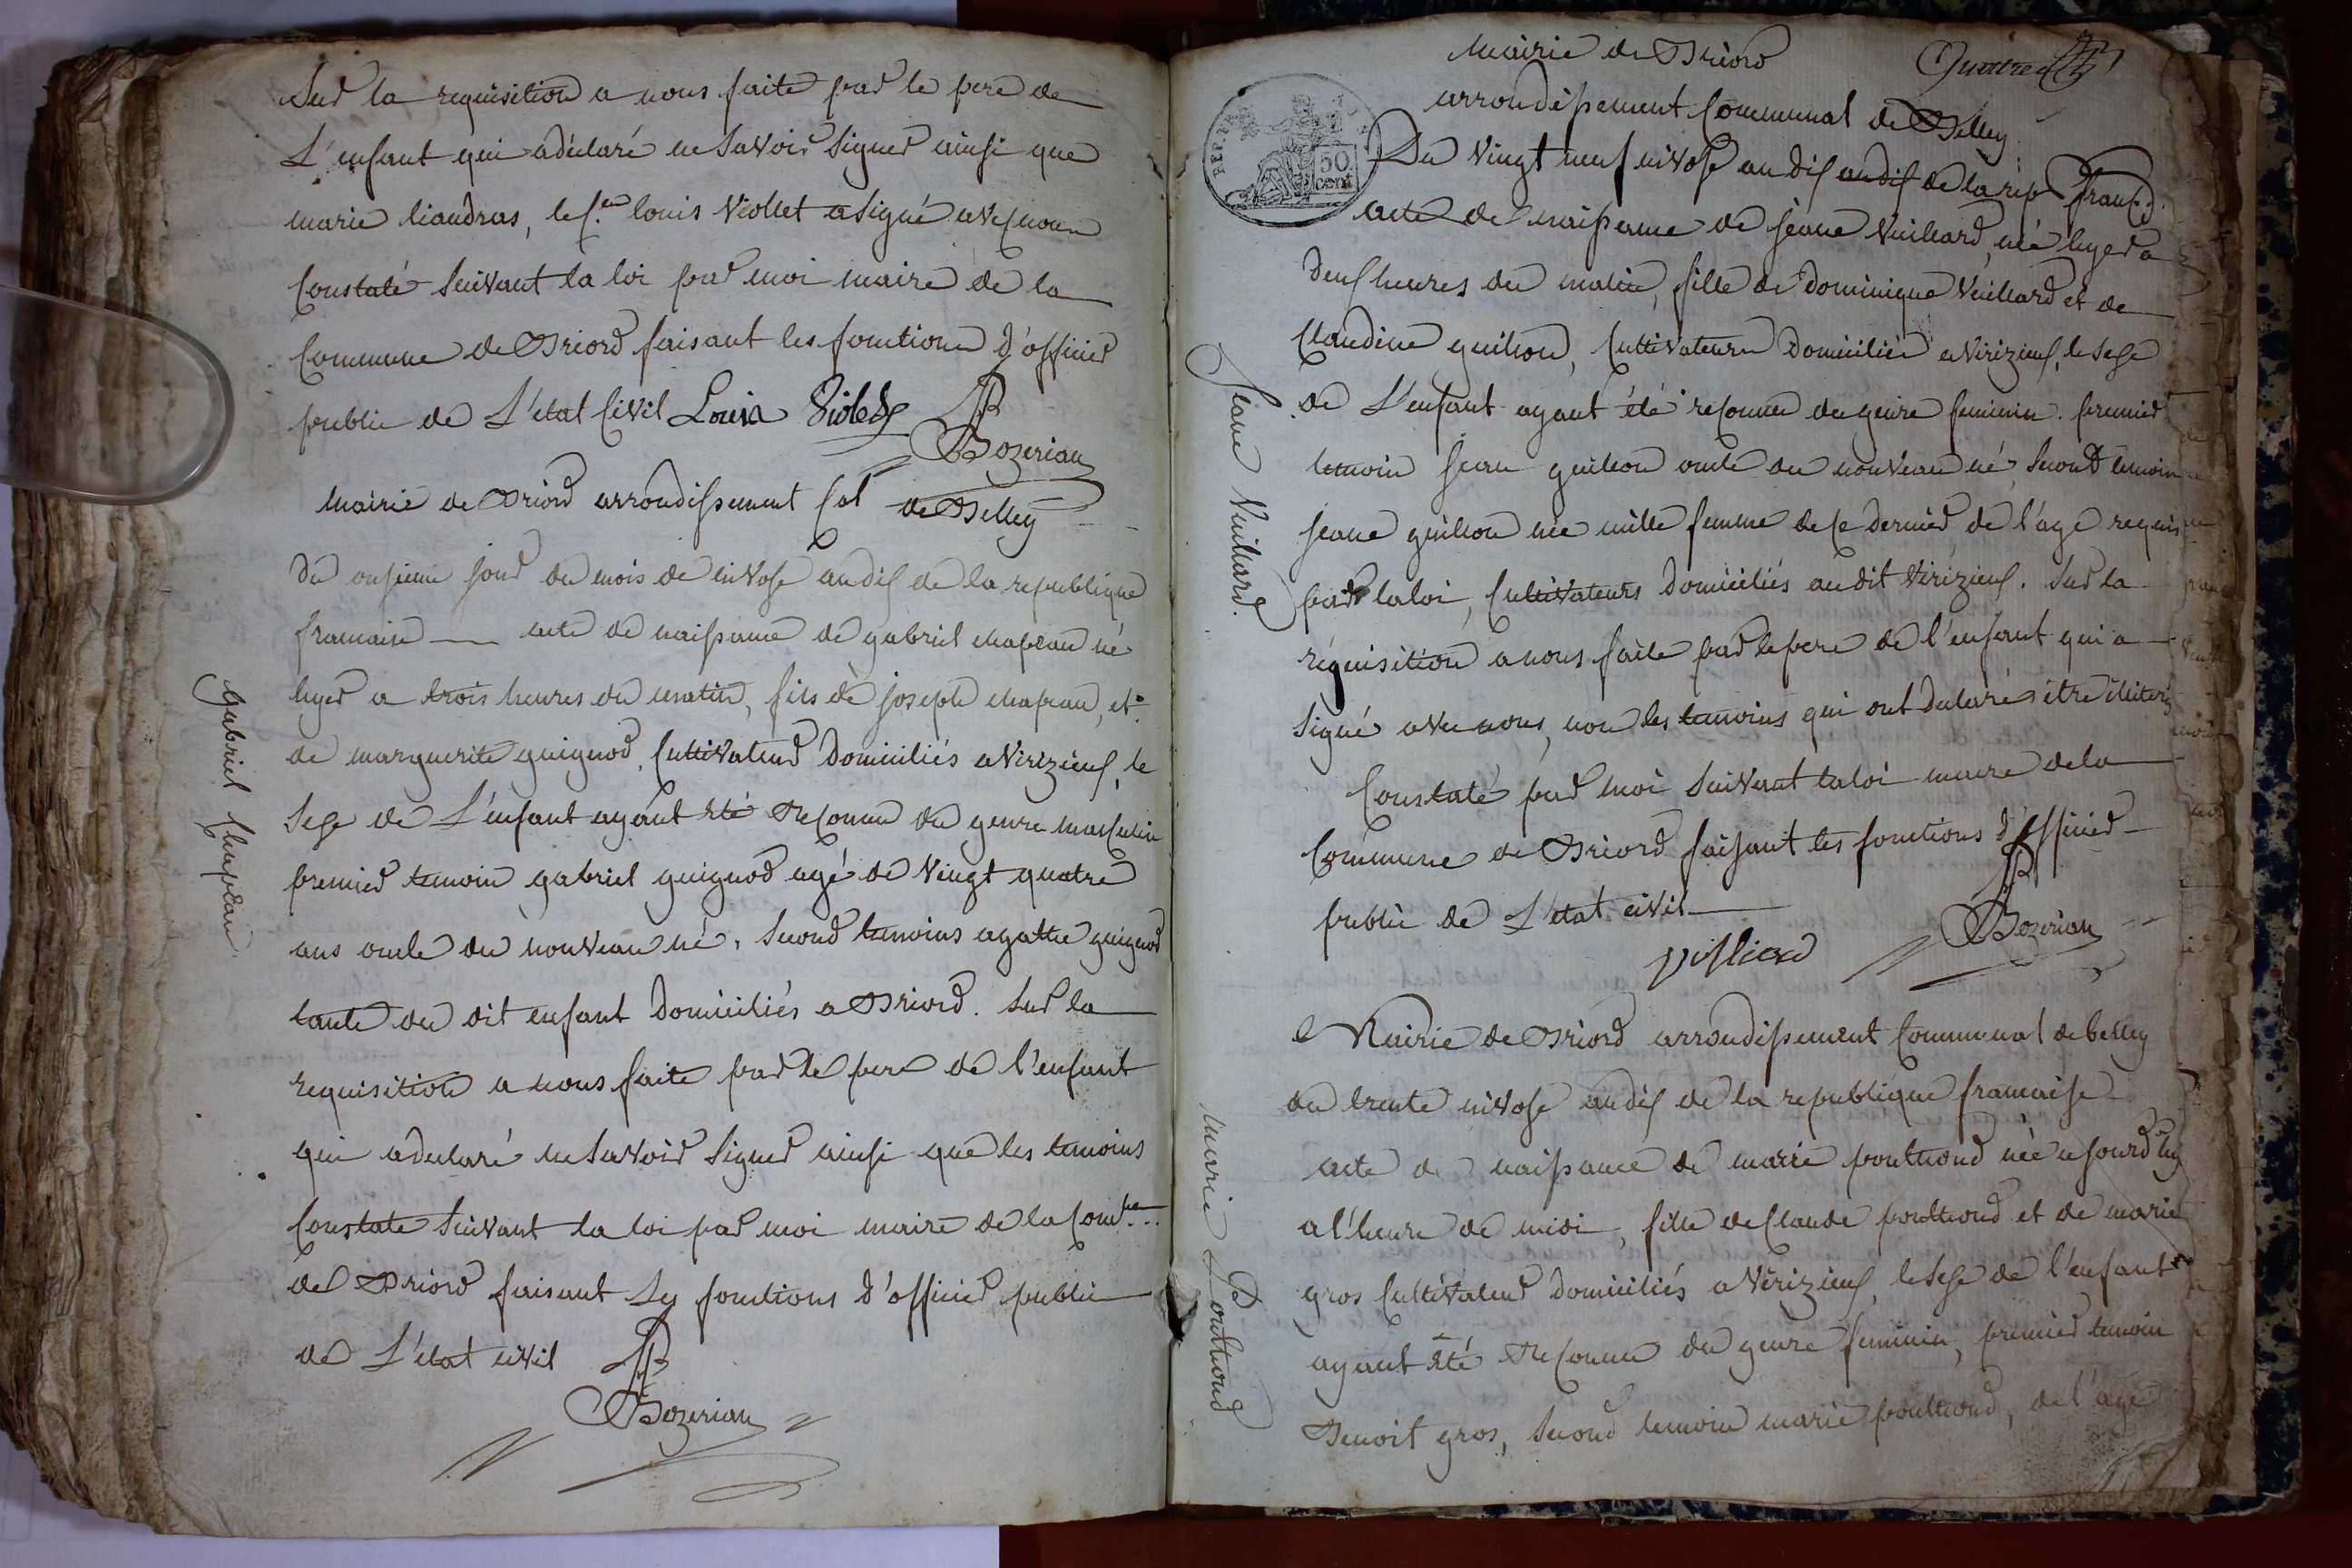 Sur la requisition a nous faite par le pere de
L'enfant qui a déclaré ne savoir signer ainsi que
marie liandras, le c.en louis Viollet a signé avec nous
Constaté suivant la loi par moi maire de la
Commune de Briord faisant les fonctions d'officier
public de L'etat Civil Louis Violet
Bozerian
Mairie de Briord arrondissement Cal de Belley
Du onsieme jour du mois de nivose an dix de la republique
francaise — acte de naissance de gabriel chapeau né
hyer a trois heures du matin, fils de joseph chapeau, et
de marguerite guignod, Cultivateur Domiciliés a Virizieux, le
Sexe de L'enfant ayant eté Reconnu du genre masculin
premier temoin gabriel guignod agé de Vingt quatre
ans oncle du nouveau né, second temoins agathe guignod
tante du dit enfant Domiciliés a Briord. Sur la
requisition a nous faite par le pere de l'enfant
qui a declaré ne savoir signer ainsi que les temoins
Constate suivant la loi par moi maire de la Com.ne
de Briord faisant les fonctions d'officier public
de L'etat civil
Bozerian
Gabriel Chapeau
Mairie de Briord
arrondissement Communal de Belley
50
cent
Du Vingt neuf nivose an dix an dix de la rep. franç.
acte de naissance de jeane Vuillard, née hyer a
deux heures du matin, fille de Dominique Vuillard et de
Claudine guillon, Cultivateurs Domiciliés a Virizieux, le sexe
de L'enfant ayant été reconnu du genre feminin. premier
temoin jean guillon oncle du nouveau né, second temoin
jeane guillon née mille femme de ce dernier de l'age requis
par la loi, Cultivateurs Domiciliés au dit Virizieux. Sur la
réquisition a nous faite par le pere de l'enfant qui a
signé avec nous, non les temoins qui ont declaré être illiterés
Constaté par moi suivant la loi maire de la
Commune de Briord faisant les fonctions d'officier
public de L'etat civil
Bozerian
Jeane Vuillard.
Mairie de Briord arrondissement Communal de belley
du trente nivose an dix de la republique francaise
acte de naissance de marie poulthond née ajourd'huy
a l'heure de midi, fille de Claude poulthond et de marie
gros Cultivateur Domiciliés a Vérizieux, le sexe de l'enfant
ayant eté Reconnu du genre feminin, premier temoin
Benoit gros, second temoin marie poulthond, de l'age
Marie Poulthond